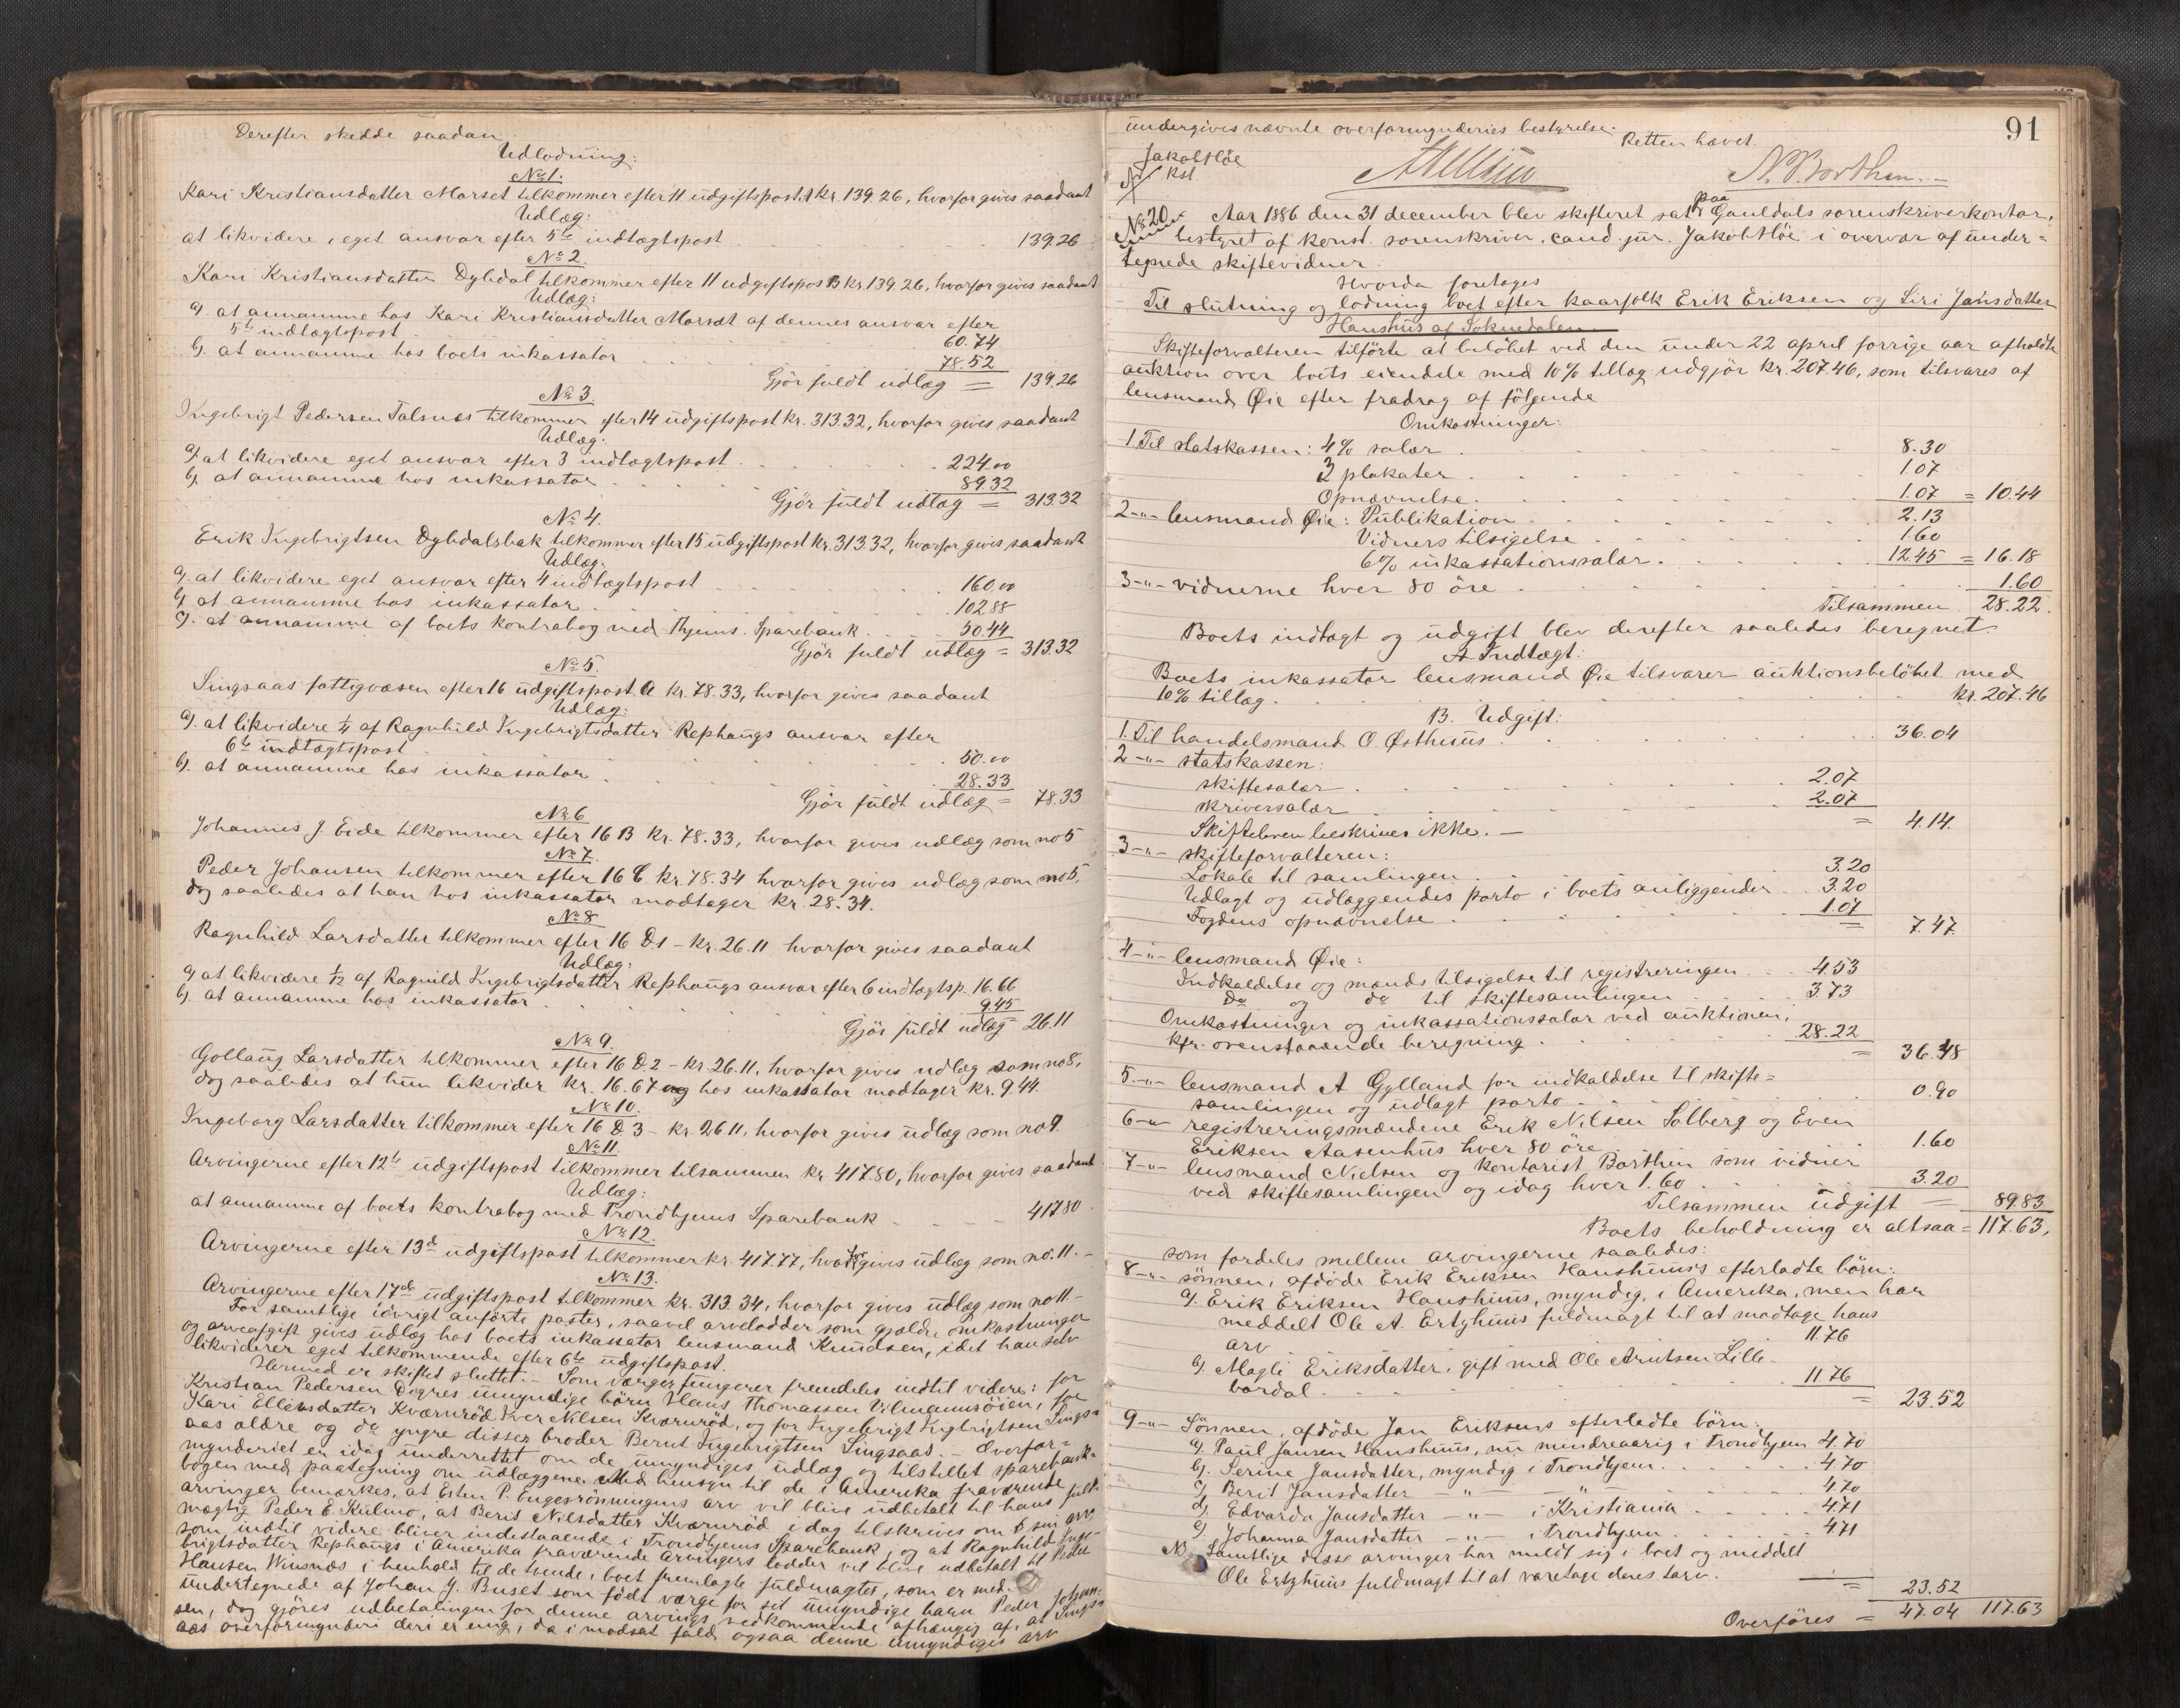 Derefter skedde saadan
Udlodning:
No 1.
Kari Kristiansdatter Morset tilkommer efter 11 udgiftspost A kr. 139.26, hvorfor gives saadant
Udlæg:
at likvidere i eget ansvar efter 5te indtægtspost 139.26
No 2.
Kari Kristiansdatter Dybdal tilkommer efter 11 udgiftspost B kr. 139.26, hvorfor gives saadant
Udlæg:
a). at annamme hos Kari Kristiansdatter Morset af dennes ansvar efter
5te indtægtspost 60.74
b). at annamme hos boets inkassator 78.52
Gjör fuldt udlæg = 139.26
No 3.
Ingebrigt Pedersen Talsnes tilkommer efter 14 udgiftspost kr. 313.32, hvorfor gives saadant
Udlæg:
a) at likvidere eget ansvar efter 3 indtægtspost 224.00
b) at annamme hos inkassator 89.32
Gjör fuldt udlæg = 313.32
No 4.
Erik Ingebrigtsen Dybdalsbak tilkommer efter 15 udgiftspost kr. 313.32, hvorfor gives saadant
Udlæg:
a). at likvidere eget ansvar efter 4 indtægtspost 160.00
b) at annamme hos inkassator 102.88
c). at annamme af boets kontrabog med Thjems. Sparebank 50.44
Gjör fuldt udlæg = 313.32
No 5.
Singsaas fattigvæsen efter 16 udgiftspost A kr. 78.33, hvorfor gives saadant
Udlæg:
a). at likvidere 1/4 af Ragnhild Ingebrigtsdatter Rephaugs ansvar efter
6te indtægtspost 50.00
b). at annamme hos inkassator 28.33
Gjör fuldt udlæg = 78.33
No 6
Johannes J. Eide tilkommer efter 16 B kr. 78.33, hvorfor gives udlæg som no 5
No 7.
Peder Johansen tilkommer efter 16 C. kr. 78.34 hvorfor gives udlæg som no 5,
dog saaledes at han hos inkassator modtager kr. 28.34.
No 8
Ragnhild Larsdatter tilkommer efter 16 D.1 - kr. 26.11 hvorfor gives saadant
Udlæg:
a) at likvidere 1/12 af Ragnild Ingebrigtsdatter Rephaugs ansvar efter 6 indtægtsp. 16.66
b). at annamme hos inkassator 9.45
Gjör fuldt udlæg = 26.11
No 9.
Gollaug Larsdatter tilkommer efter 16 D.2 - kr. 26.11, hvorfor gives udlæg som no 8,
dog saaledes at hun likvider kr. 16.67 og hos inkassator modtager kr. 9.44
No 10.
Ingeborg Larsdatter tilkommer efter 16 D.3 - kr. 26.11, hvorfor gives udlæg som no 9.
No 11.
Arvingerne efter 12te udgiftspost tilkommer tilsammen kr. 417.80, hvorfor gives saadant
Udlæg:
at annamme af boets kontrabog med Trondhjems Sparebank 417.80
No 12.
Arvingerne efter 13de udgiftspost tilkommer kr. 417.77, hvorfor gives udlæg som no. 11. -
No 13.
Arvingerne efter 17de udgiftspost tilkommer kr. 313.34, hvorfor gives udlæg som no 11 -
For samtlige iövrigt anförte poster, saavel arvelodder som gjæld, omkostninger
og arveafgift gives udlæg hos boets inkassator lensmand Knudsen, idet han selv
likviderer eget tilkommende efter 6te udgiftspost.
Hermed er skiftet sluttet. - Som værger fungerer fremdeles indtil videre: for
Kristian Pedersen Dogres umyndige börn Hans Thomassen Vilmansöien, for
Kari Ellensdatter Kværnröd Iver Nilsen Kværnröd, og for Ingebrigt Ingbrigtsen Sings-
aas ældre og do yngre disses broder Bernt Ingebrigtsen Singsaas. - Overfor-
mynderiet er idag underrettet om de umyndiges udlæg og tilstillet sparebank-
bogen med paategning om udlæggene. Med hensyn til de i Amerika fraværende
arvinger bemærkes, at Esten P. Engesrönningens arv vil blive udbetalt til hans fuld-
mægtig Peder E. Kulmo, at Beris Nilsdatter Kværnröd idag tilskrives om sin arv
som indtil videre bliver indestaaende i Trondhjems Sparebank, og at Ragnhild Inge-
brigtsdatter Rephaugs i Amerika fraværende Arvingers lodder vil blive udbetalt til Peder
Hansen Winsnæs i henhold til de tvende i boet fremlagte fuldmagter, som er med-
undertegnede af Johan J. Buset som födt værge for sit umyndige barn Peder Johan-
sen, dog gjöres udbetalingen for denne arvings vedkommende afhængig af, at Sings-
aas overformynderi deri er enig, da i modsat fald ogsaa denne umyndiges arv
91
undergives nævnte overformynderies bestyrelse.
Retten hævet.
Jakob Höe
kst.
N. Borthen. -
No 20
Aar 1886 den 31 december blev skifteret sat paa Gauldals sorenskriverkontor,
bestyret af konst. sorenskriver, cand. jur. Jakob Höe i overvær af under-
tegnede skiftevidner.
Hvorda foretoges
Til slutning og lodning boet efter kaarfolk Erik Eriksen og Siri Jansdatter
Haushus af Soknedalen
Skifteforvalteren tilförte at belöbet ved den under 22 april forrige aar afholdte
auktion over boets eiendele med 10% tillæg udgjör kr. 207.46, som tilsvares af
lensmand Øie efter fradrag af fölgende
Omkostninger:
1. Til statskassen: 4% salær 8.30
3 plakater 1.07
Opnævnelse 1.07 = 10.44
2 -"- lensmand Øie: Publikation 2.13
Vidners tilsigelse 1.60
6% inkassationssalær 12.45 = 16.18
3 -"- vidnerne hver 80 öre 1.60
Tilsammen 28.22.
Boets indtægt og udgift blev derefter saaledes beregnet
A. Indtægt:
Boets inkassator lensmand Øie tilsvarer auktionsbelöbet med
10% tillæg kr. 207.46
B. Udgift:
1. Til handelsmand O. Østhuus 36.04
2 -"- statskassen:
skiftesalær 2.07
skriversalær 2.07
= 4.14.
Skiftebrev beskrives ikke. -
3 -"- skifteforvalteren:
Lokale til samlingen 3.20
Udlagt og udlæggendes porto i boets anliggender 3.20
Fogdens opnævnelse 1.07
= 7.47.
4 -"- lensmand Øie:
Indkaldelse og mænds tilsigelse til registreringen 4.53
Do og do til skiftesamlingen 3.73
Omkostninger og inkassationssalær ved auktionen,
kfr. ovenstaaende beregning 28.22
= 36.48
5 -"- lensmand A Gylland for indkaldelse til skifte-
samlingen og udlagt porto 0.90
6 -"- registreringsmændene Erik Nilsen Solberg og Even
Eriksen Aasenhus hver 80 öre 1.60
7 -"- lensmand Nielsen og kontorist Borthen som vidner
ved skiftesamlingen og idag hver 1.60 3.20
Tilsammen udgift = 89.83
Boets beholdning er altsaa = 117.63,
som fordeles mellem arvingerne saaledes:
8 -"- sönnen, afdöde Erik Eriksen Haushuus's efterladte börn:
a). Erik Eriksen Haushuus, myndig, i Amerika, men har
meddelt Ole A. Ertzhuus fuldmagt til at modtage hans
arv 11.76
b) Magli Eriksdatter, gift med Ole Arntsen Lille-
bordal 11.76
= 23.52
9 -"- Sönnen, afdöde Jan Eriksens efterladte börn:
a). Paul Jansen Haushuus, nu mindreaarig i Trondhjem 4.70
b). Serine Jansdatter, myndig i Trondhjem 4.70
c) Berit Jansdatter -"- -"- 4.70
d). Edvarda Jansdatter -"- i Kristiania 4.71
e). Johanna Jansdatter -"- i Trondhjem 4.71
NB Samtlige disse arvinger har meldt sig i boet og meddelt
Ole Ertzhuus fuldmagt til at varetage deres tarv.
= 23.52
Overföres = 47.04 117.63